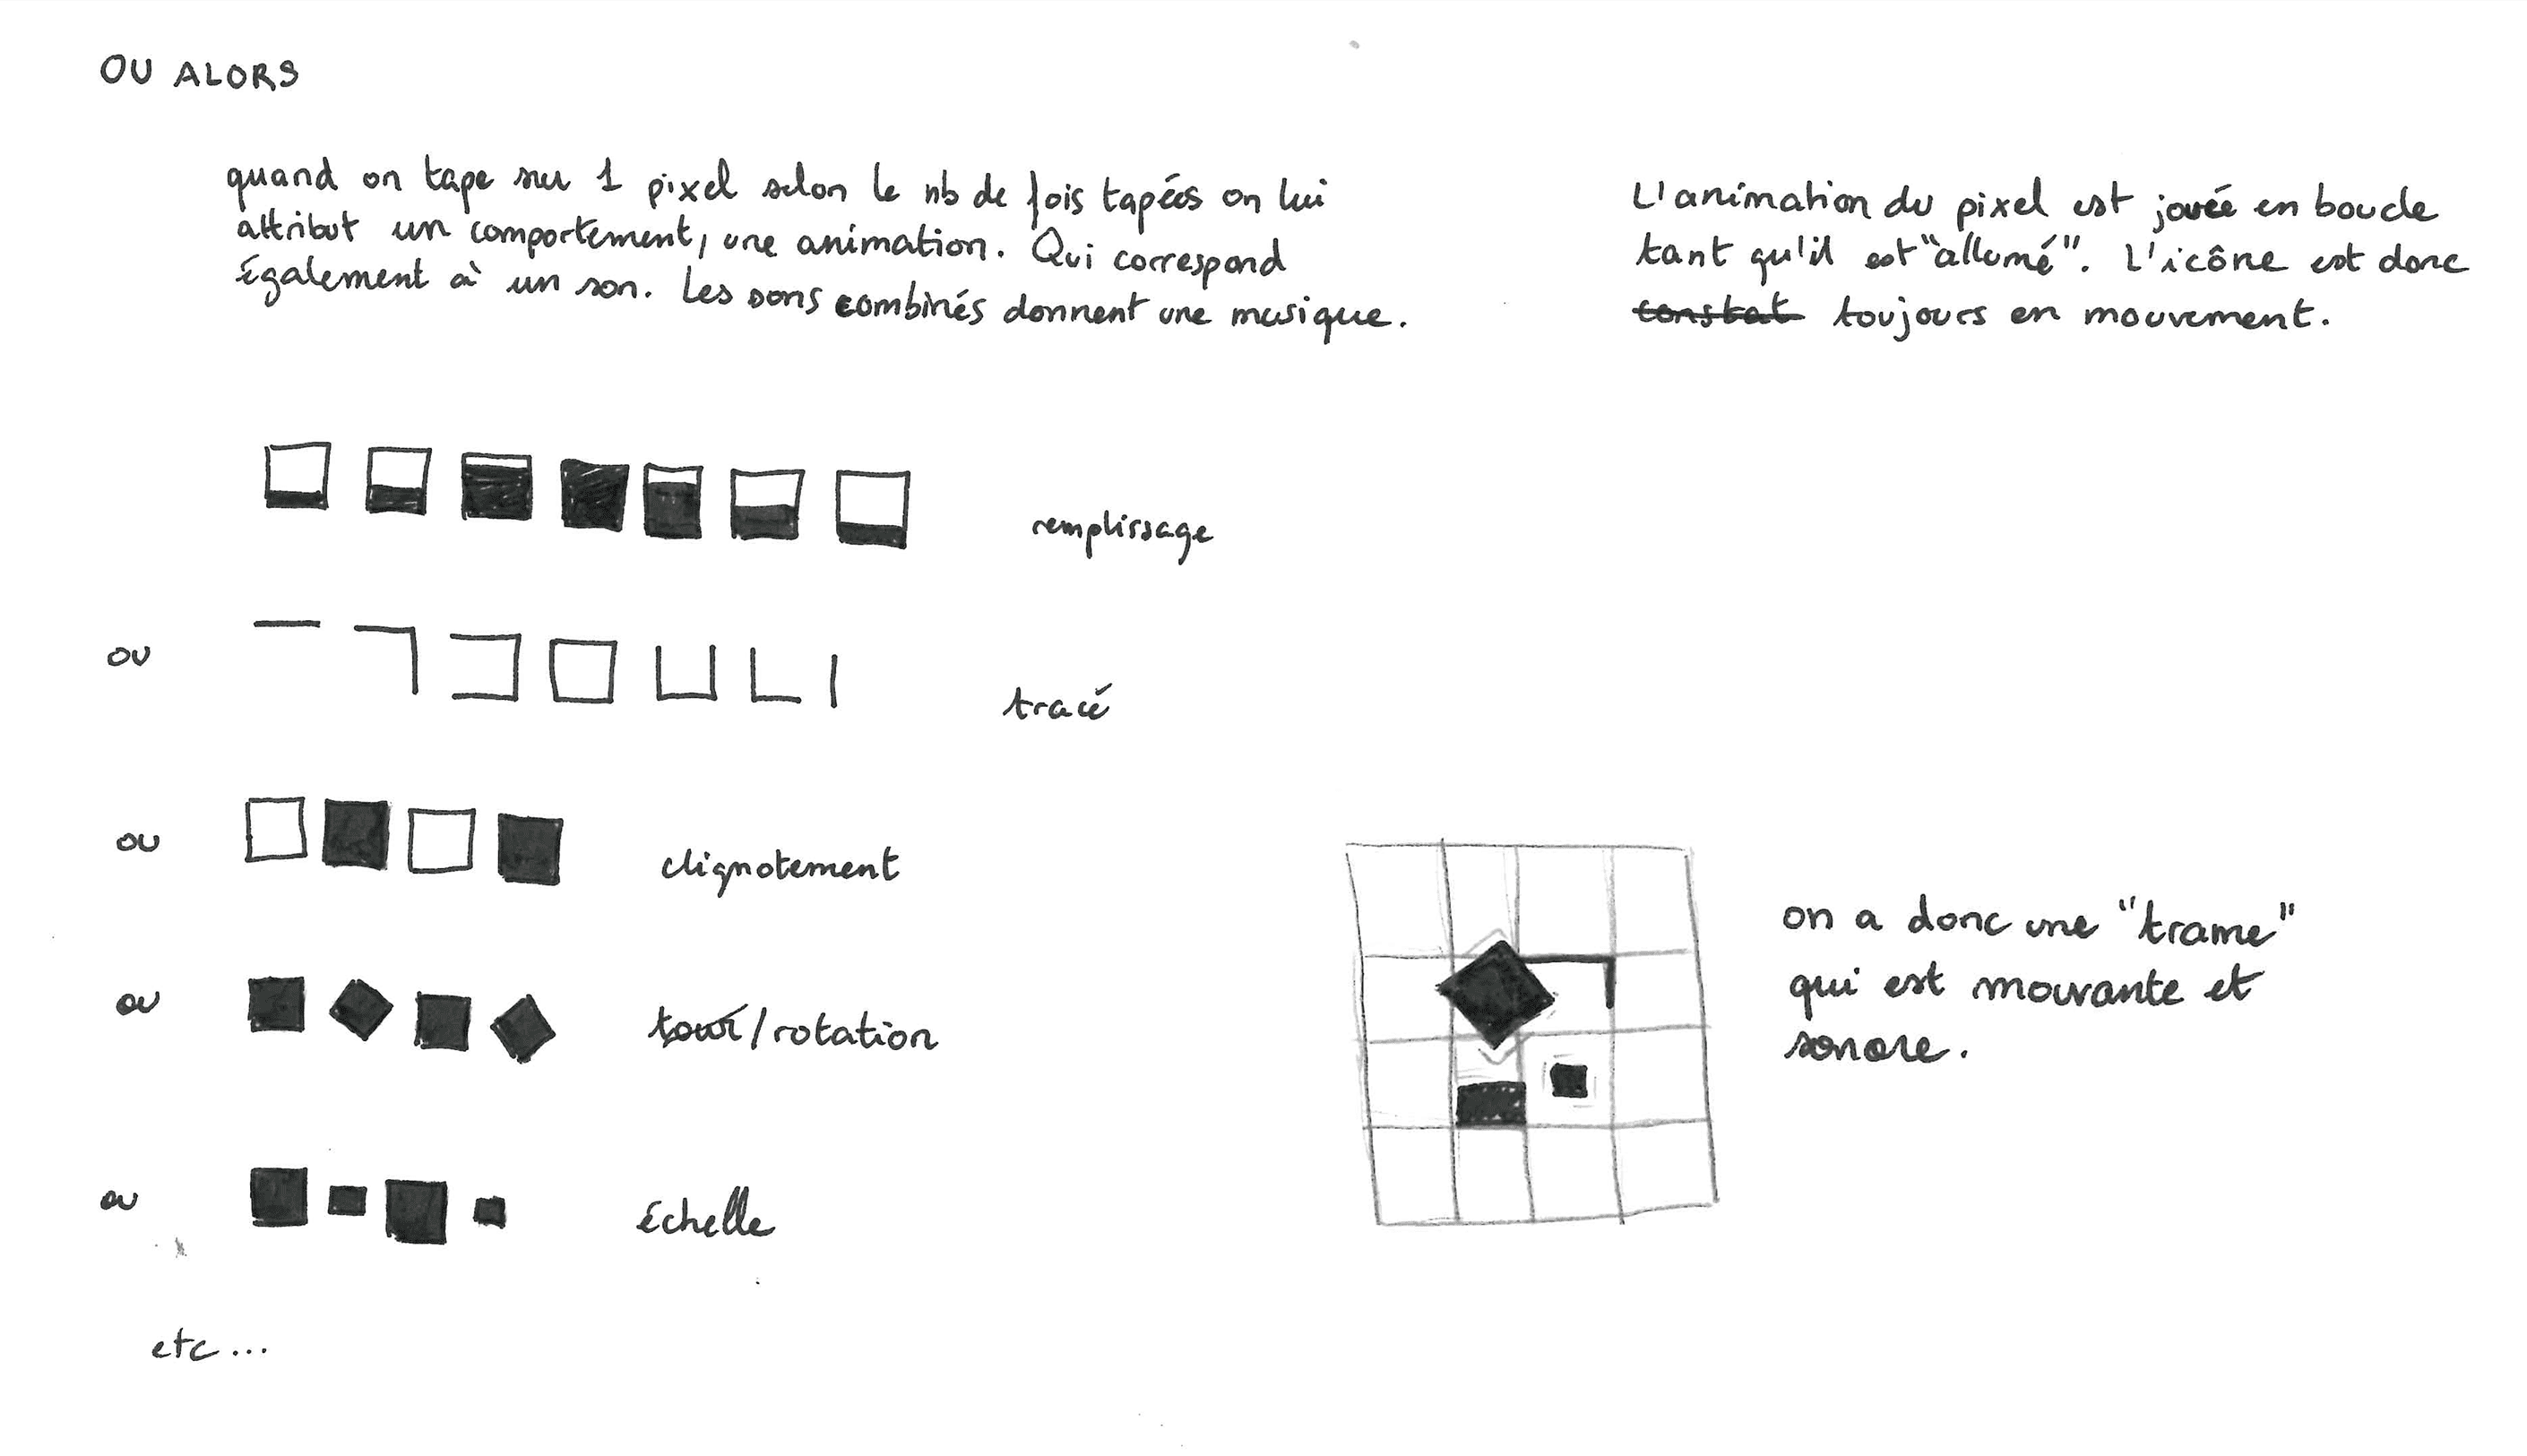 OU ALORS
quand on tape sur 1 pixel selon le nb de fois tapées on lui
attribut un comportement, une animation. Qui correspond
également à un son. Les sons combinés donnent une musique.
L'animation du pixel est jouée en boucle
tant qu'il est "allumé". L'icône est donc
constat toujours en mouvement.
remplissage
ou
tracé
ou
clignotement
ou
tour/rotation
ou
échelle
etc...
on a donc une "trame"
qui est mouvante et
sonore.